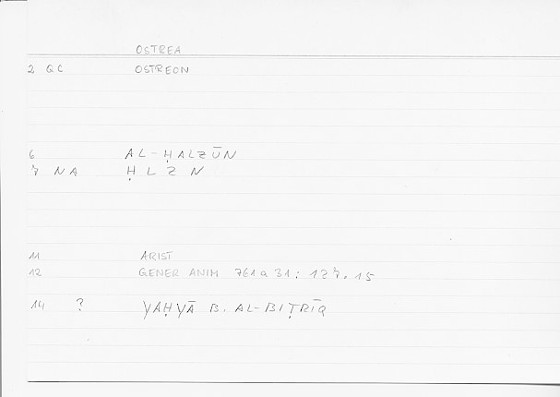 OSTREA
2 QC OSTREON
6 AL-ḤALZŪN
7 NA ḤLZN
11 ARIST
12 GENER ANIM 761a31: 127,15
14 ? YAḤYĀ B. AL-BIṬRĪQ